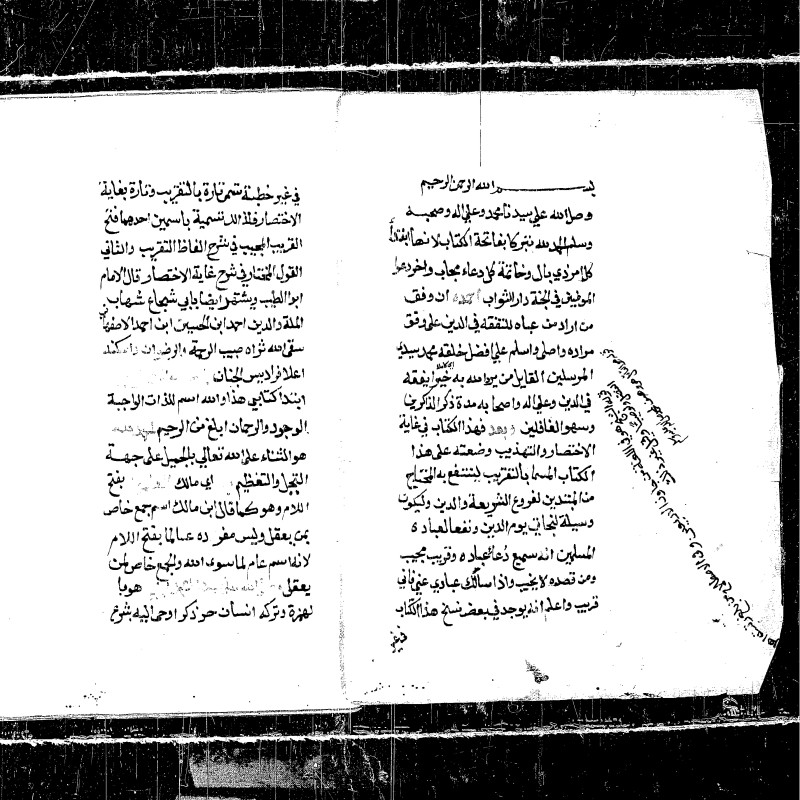 بسم الله الرحمن الرحيم
وصلى الله على سيدنا محمد وعلى اله وصحبه
وسلم الحمد لله نتبركا بفاتحة الكتاب لانها ابتداء
كل امر ذي بال وخاتمة كل دعاء مجاب واخر دعوا
المومنين في الجنة دار الثواب احمده ان وفق
من اراد من عباه للتفقه في الدين على وفق
مراده واصلي واسلم على افضل خلقه محمد سيد
المرسلين القايل من يرد الله به خيرا يفقهه
في الدين وعلى اله واصحابه مدة ذكر الذاكرين
وسهو الغافلين وبعد فهذا الكتاب في غاية
الاختصار والتهذيب وضعته على هذا
الكتاب المسما بالتقريب لينتفع به المحتاج
من المبتدين لفروع الشريعة والدين وليكون
وسيلة لنجاتي يوم الدين ونفعا لعباده
المسلمين انه سميع دعا عباده وقريب مجيب
ومن قصده لا يخيب واذا سالك عبادي عني فاني
قريب واعلم انه يوجد في بعض نسخ هذا الكتاب
في غير
في غير خطبته تسميته تارة بالتقريب وتارة بغاية
الاختصار فلذالك تسمية باسمين احدهما فتح
القريب المجيب في شرح الفاظ التقريب والثاني
القول المختار في شرح غاية الاختصار قال الامام
ابو الطيب ويشتهر ايضا بابي شجاع شهاب
الملة والدين احمد ابن الحسين ابن احمد الاصفهاني
سقى الله ثراه صبيب الرحمة والرضوان واسكنه
اعلا فراديس الجنان
ابتدا كتابي هذا والله اسم للذات الواجبة
الوجود والرحمان ابلغ من الرحيم
هو الثناء على الله تعالى بالجميل على جهة
التبجل والتعظيم اي مالك بفتح
اللام وهو كما قال ابن مالك اسم جمع خاص
بمن يعقل وليس مفرده عالما بفتح اللام
لانه اسم عام لما سوى الله والجمع خاص لمن
يعقل هو با
لهمزة وتركه انسان حر ذكر اوحى اليه بشرع